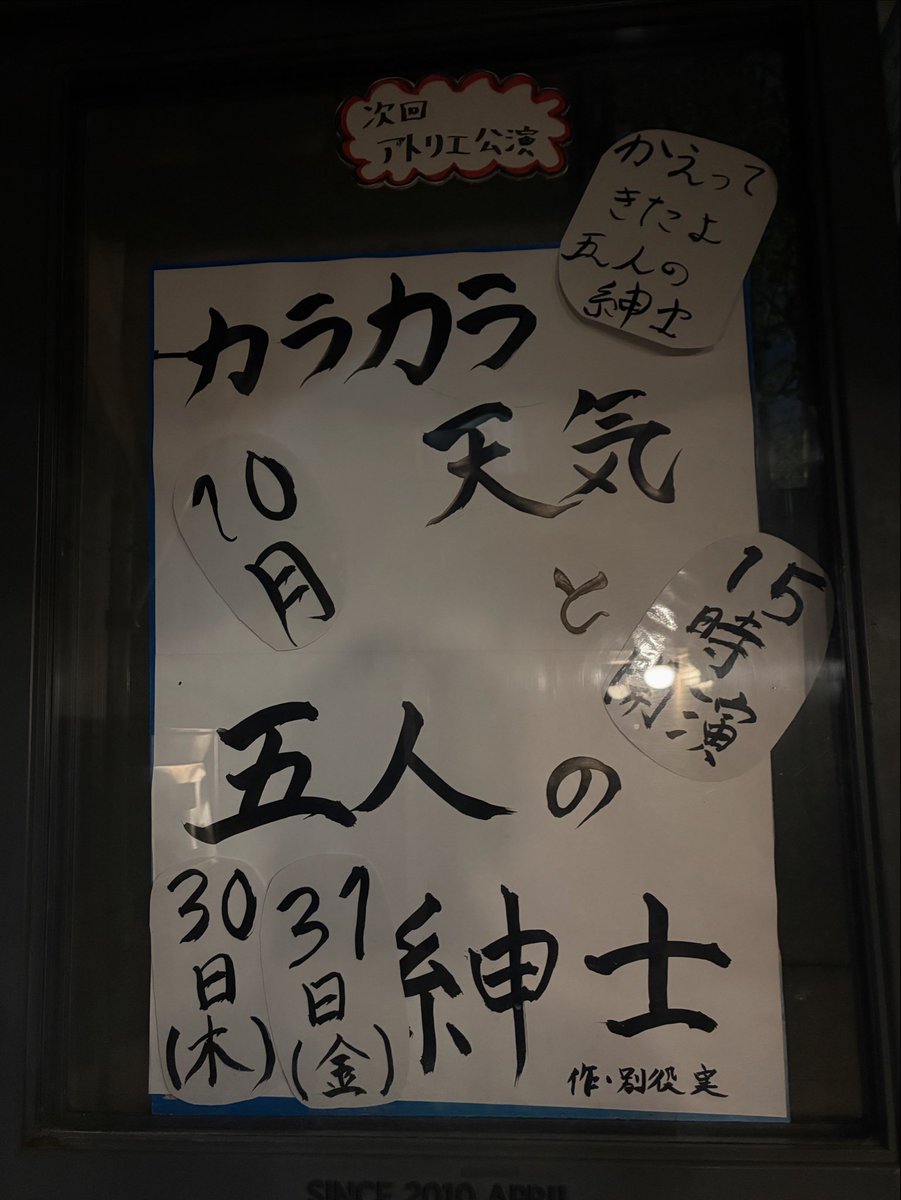 次回
アトリエ公演
かえって
きたよ
五人の
紳士
カラカラ
天気
と
五人の
紳士
10
月
15
時
開演
30
日
(木)
31
日
(金)
作・別役実
SINCE 2010 APRIL